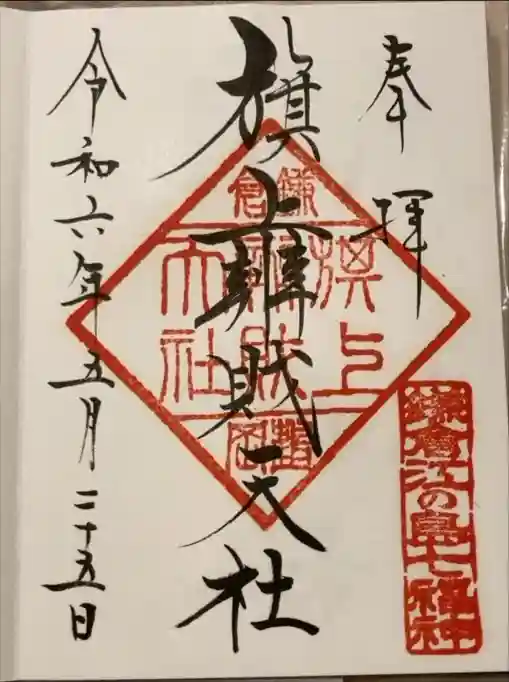 奉拝
旗上辨財天社
令和六年五月二十五日
鎌倉
旗上
辨財
天社
鶴岡
鎌倉江の島七福神